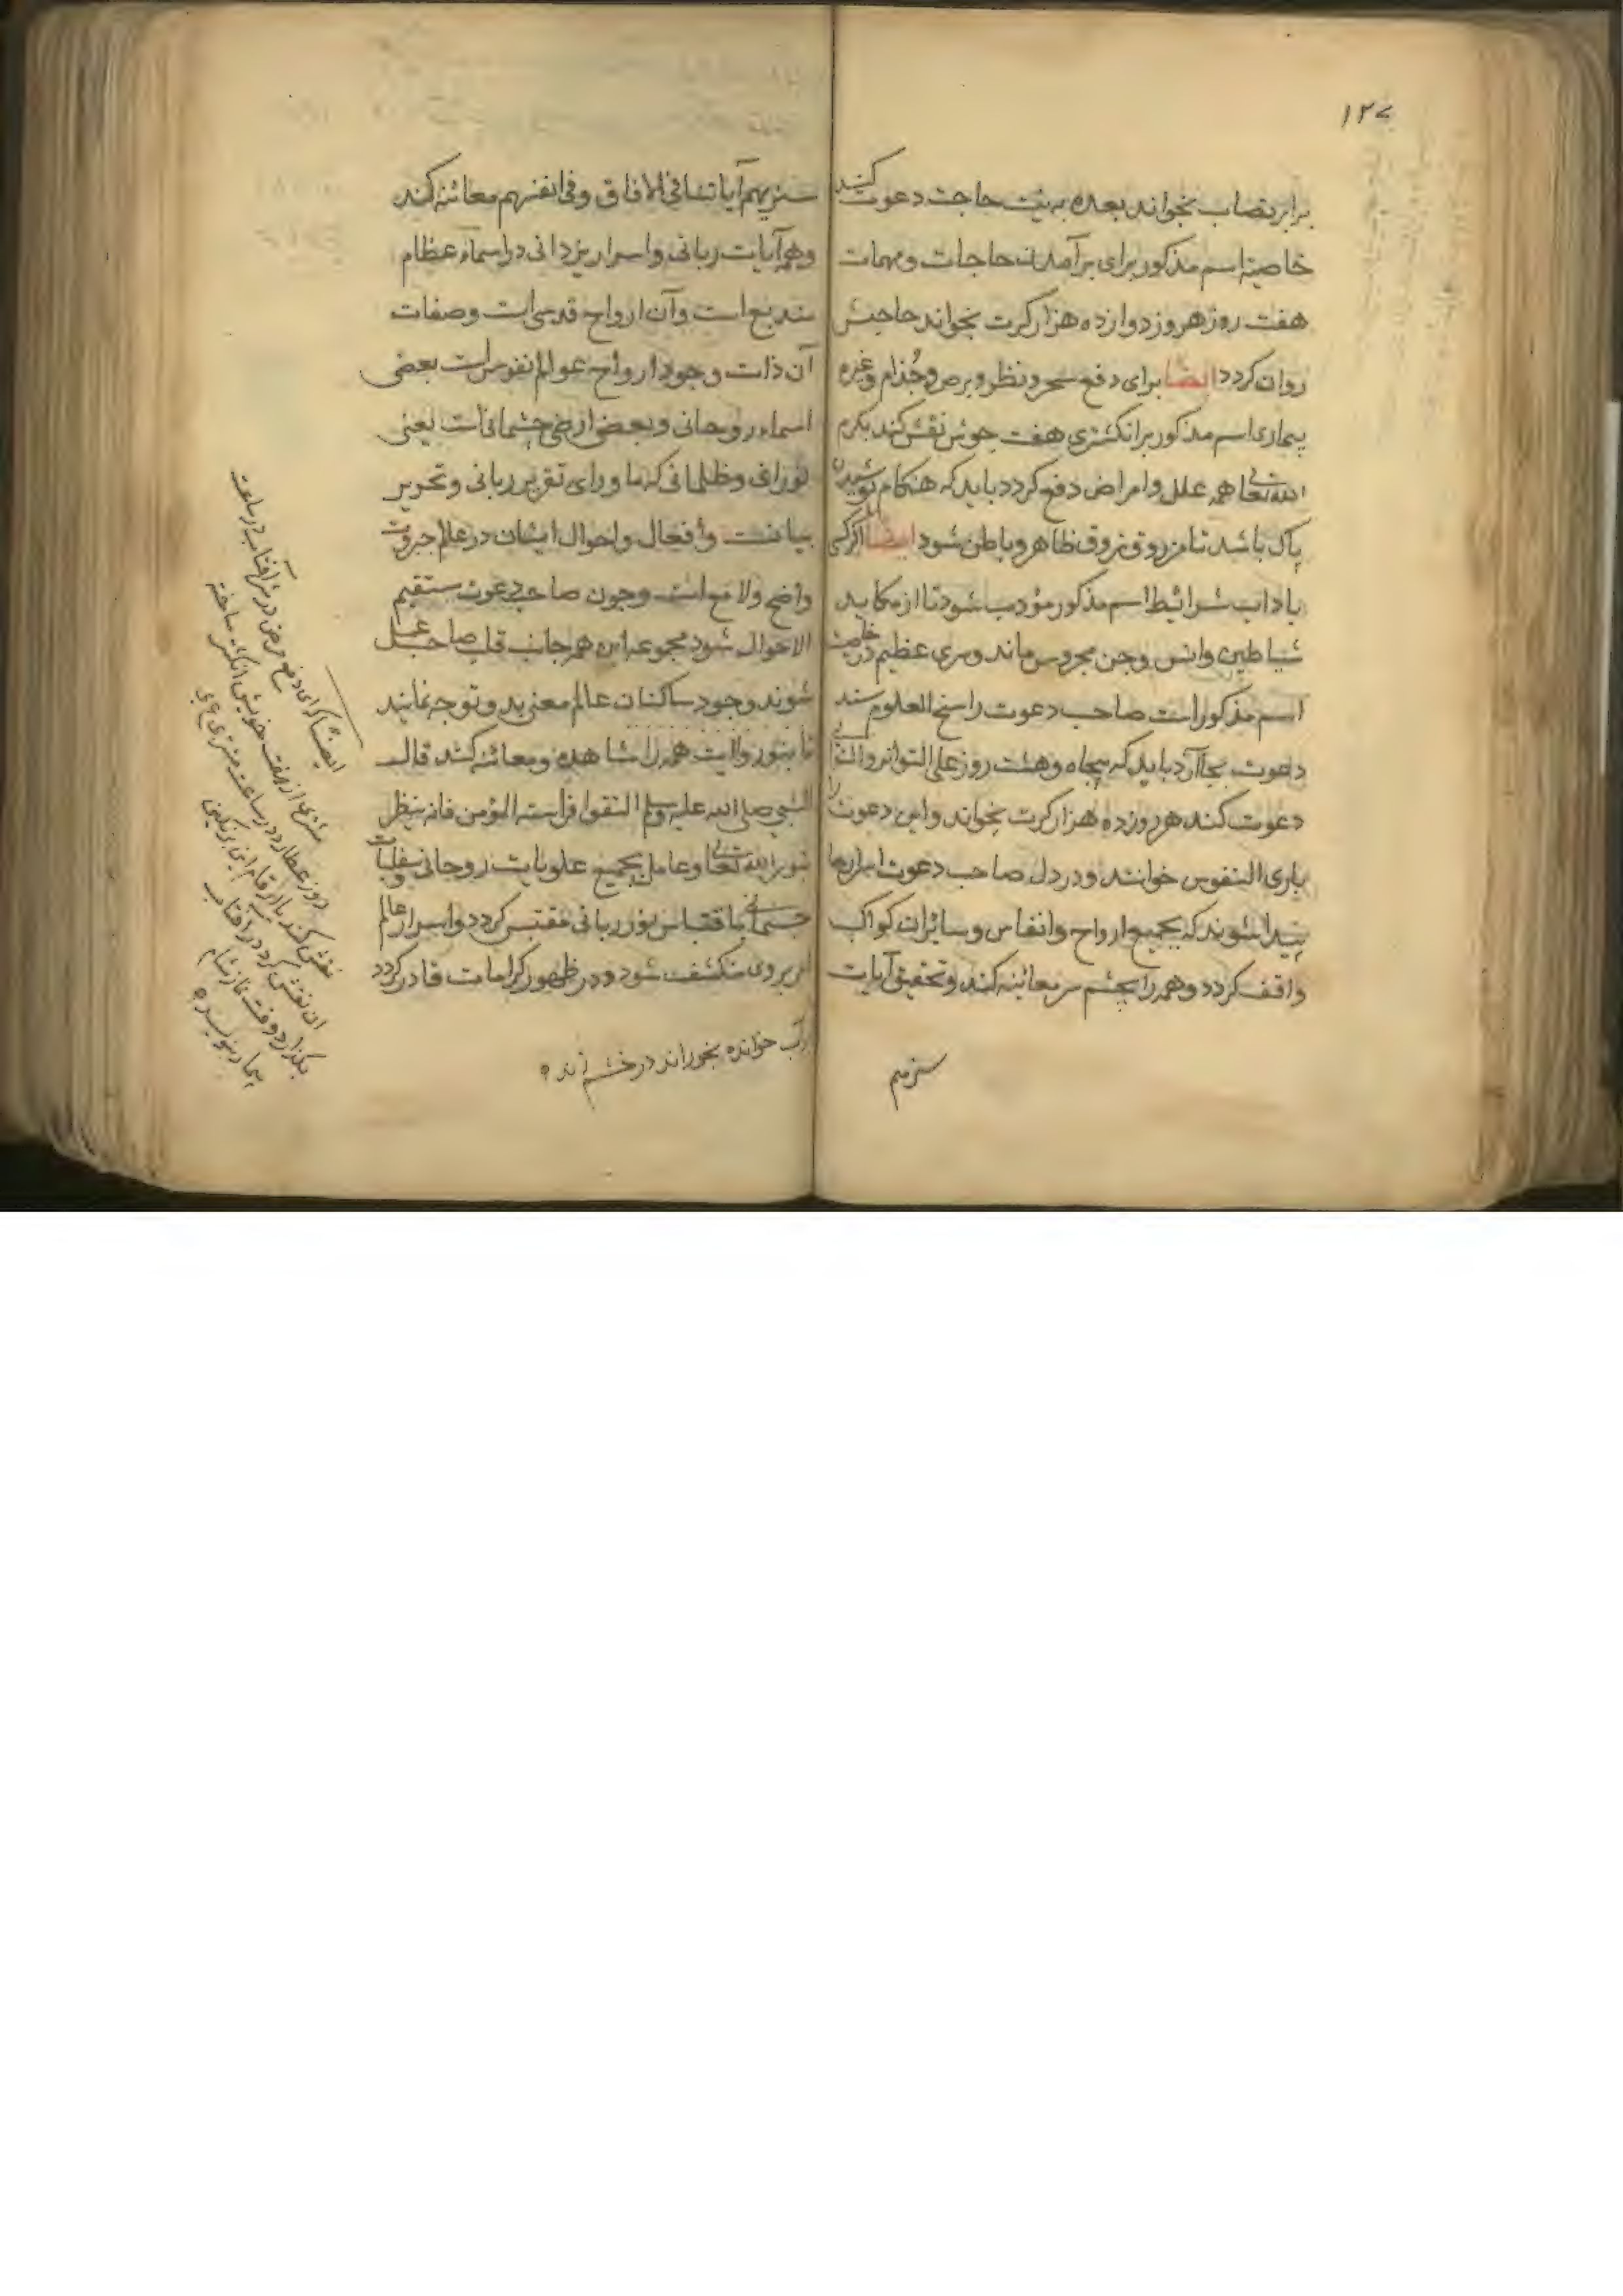 ۱۲۷
برابر نصاب بخواند بعده به نیت حاجت دعوت کند
خاصیة اسم مذکور برای برآمدن حاجات و مهمات
هفت روز هر روز دوازده هزار کرت بخواند حاجتش
روان کردد ایضا برای دفع سحر و نظر و برص و جذام وغیره
بیماری اسم مذکور بر انکشتری هفت جوش نقش کند بکرم
الله تعالی همه علل و امراض دفع کردد باید که هنکام
پاک باشد تا مرزوق ظاهر و باطن شود ایضا اکر کسی
باداب شرائیط اسم مذکور مؤدب شود تا از مکاید
شیاطین وانس وجن محروس ماند و سری عظیم در خاصیت
اسم مذکور است صاحب دعوت راسخ العلوم
دعوت بجا آرد باید که پنجاه وهشت روز علی التواتر والتوالی
دعوت کند هر روز ده هزار کرت بخواند واین دعوت را
باری النفوس خوانند و در دل صاحب دعوت اسرارها
پیدا شوند که بجمیع ارواح وانفاس وسائرات کواکب
واقف کردد وهمه را بچشم سر معائینه کند و تحقیق آیات
سنریهم
سنریهم آیاتنا فی الافاق وفی انفسهم معائنه کند
وهمه آیات ربانی واسرار یزدانی در اسماء عظام
است وآن ارواح قدسی است وصفات
آن ذات وجود ارواح عوالم نفوس است بعضی
اسماء روحانی وبعضی ارضی جسمانی است یعنی
نورانی وظلمانی که ماورای تقریر ربانی وتحریر
وافعال واحوال ایشان در علم جبروت
واضح ولامع است وچون صاحب دعوت مستقیم
الاحوال شود مجموعه این همه جانب قلب صاحب عمل
شوند وجود ساکنان عالم معنی بد و توجه نمایند
تا بنور ولایت همه را مشاهده ومعائنه کند قال
النبی صلی الله علیه وسلم اتقوا فراسة المؤمن فانه ینظر
بنور الله تعالی وعامل بجمیع علویات روحانی وسفلیات
جسمانی باقتباس نور ربانی مقتبس کردد واسرار عالم
بر وی منکشف شود ودر ظهور کرامات قادر کردد
آب خوانده بخوراند در خشم
ایضا برای دفع مرض در افتاب در ساعت
مشتری از هفت جوش انکشتری ساخته
روز عطارد در ساعت مشتری
نقش کند با ارقام این بر نکین
ان نقش کرده در افتاب
بکذارد وقت نماز شام